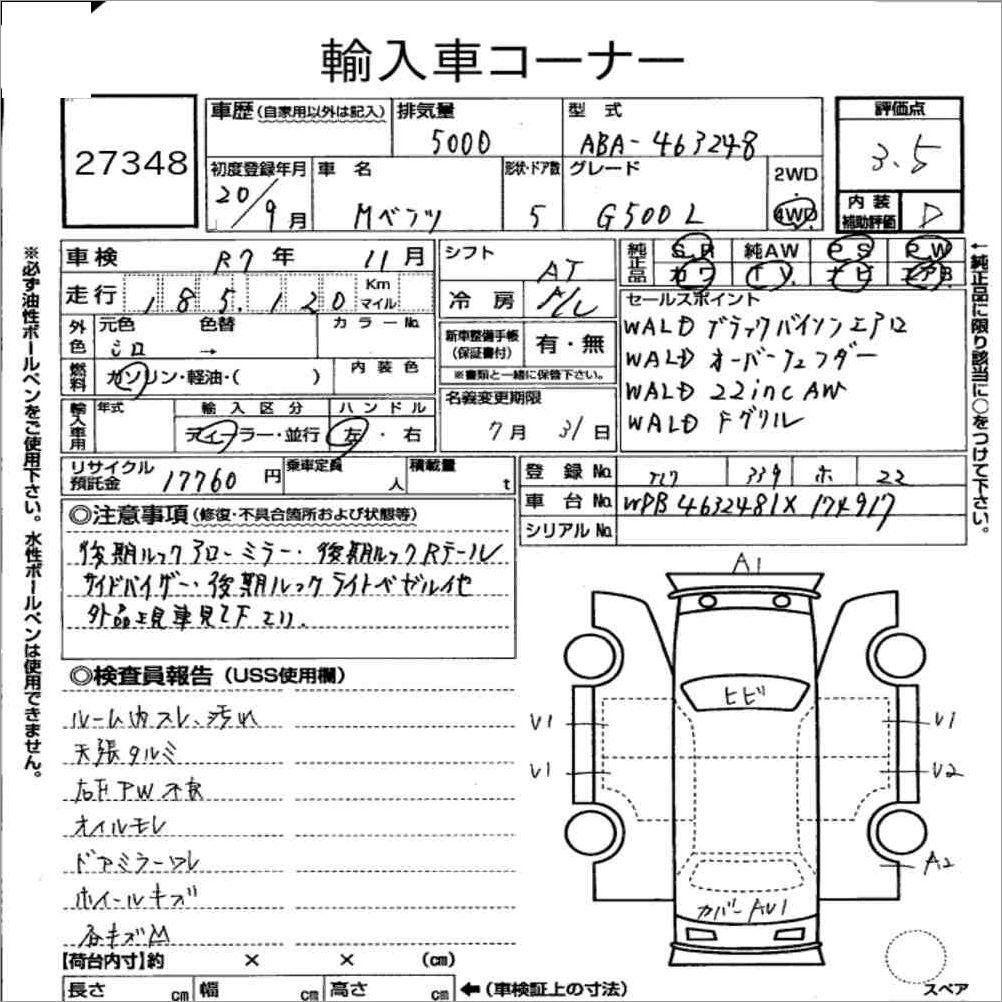 輸入車コーナー
27348
車歴 (自家用以外は記入)
排気量
5000
型式
ABA-463248
評価点
3.5
初度登録年月
20/9月
車名
Mベンツ
形状・ドア数
5
グレード
G500L
2WD
・
4WD
内装
補助評価
D
車検 R7年 11月
走行 185,120 Km マイル
シフト
AT
冷房 A/C
純正品 SR 純AW PS PW
カワ TV ナビ エアB
←純正品に限り該当に○をつけて下さい。
外色 元色 色替 カラーNo.
シロ →
燃料 ガソリン・軽油・( )
内装色
新車整備手帳
(保証書付)
有・無
※書類と一緒に保管下さい。
セールスポイント
WALD ブラックバイソンエアロ
WALD オーバーフェンダー
WALD 22inc AW
WALD Fグリル
輸入車用 年式
輸入区分
ディーラー・並行
ハンドル
左・右
名義変更期限
7月 31日
リサイクル
預託金
17760円
乗車定員
人
積載量
t
登録No. 339 ホ 22
車台No. WDB4632481X174917
シリアルNo.
◎注意事項 (修復・不具合箇所および状態等)
後期ルック アローミラー・後期ルックRテール
サイドバイザー・後期ルック ライトベゼル他
外品
◎検査員報告 (USS使用欄)
ルーム内スレ、汚れ
天張タルミ
右F PW不良
オイルモレ
ドアミラーワレ
ホイールキズ
各キズ
A1
ヒビ
U1
U1
U1
U2
A2
カバーAU1
スペア
【荷台内寸】約 × × (cm)
長さ cm 幅 cm 高さ cm ←(車検証上の寸法)
※必ず油性ボールペンをご使用下さい。水性ボールペンは使用できません。